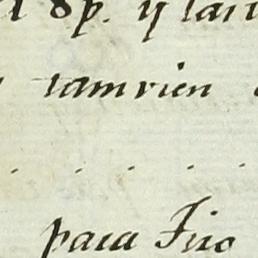 8p. y
tamvien
para Frio